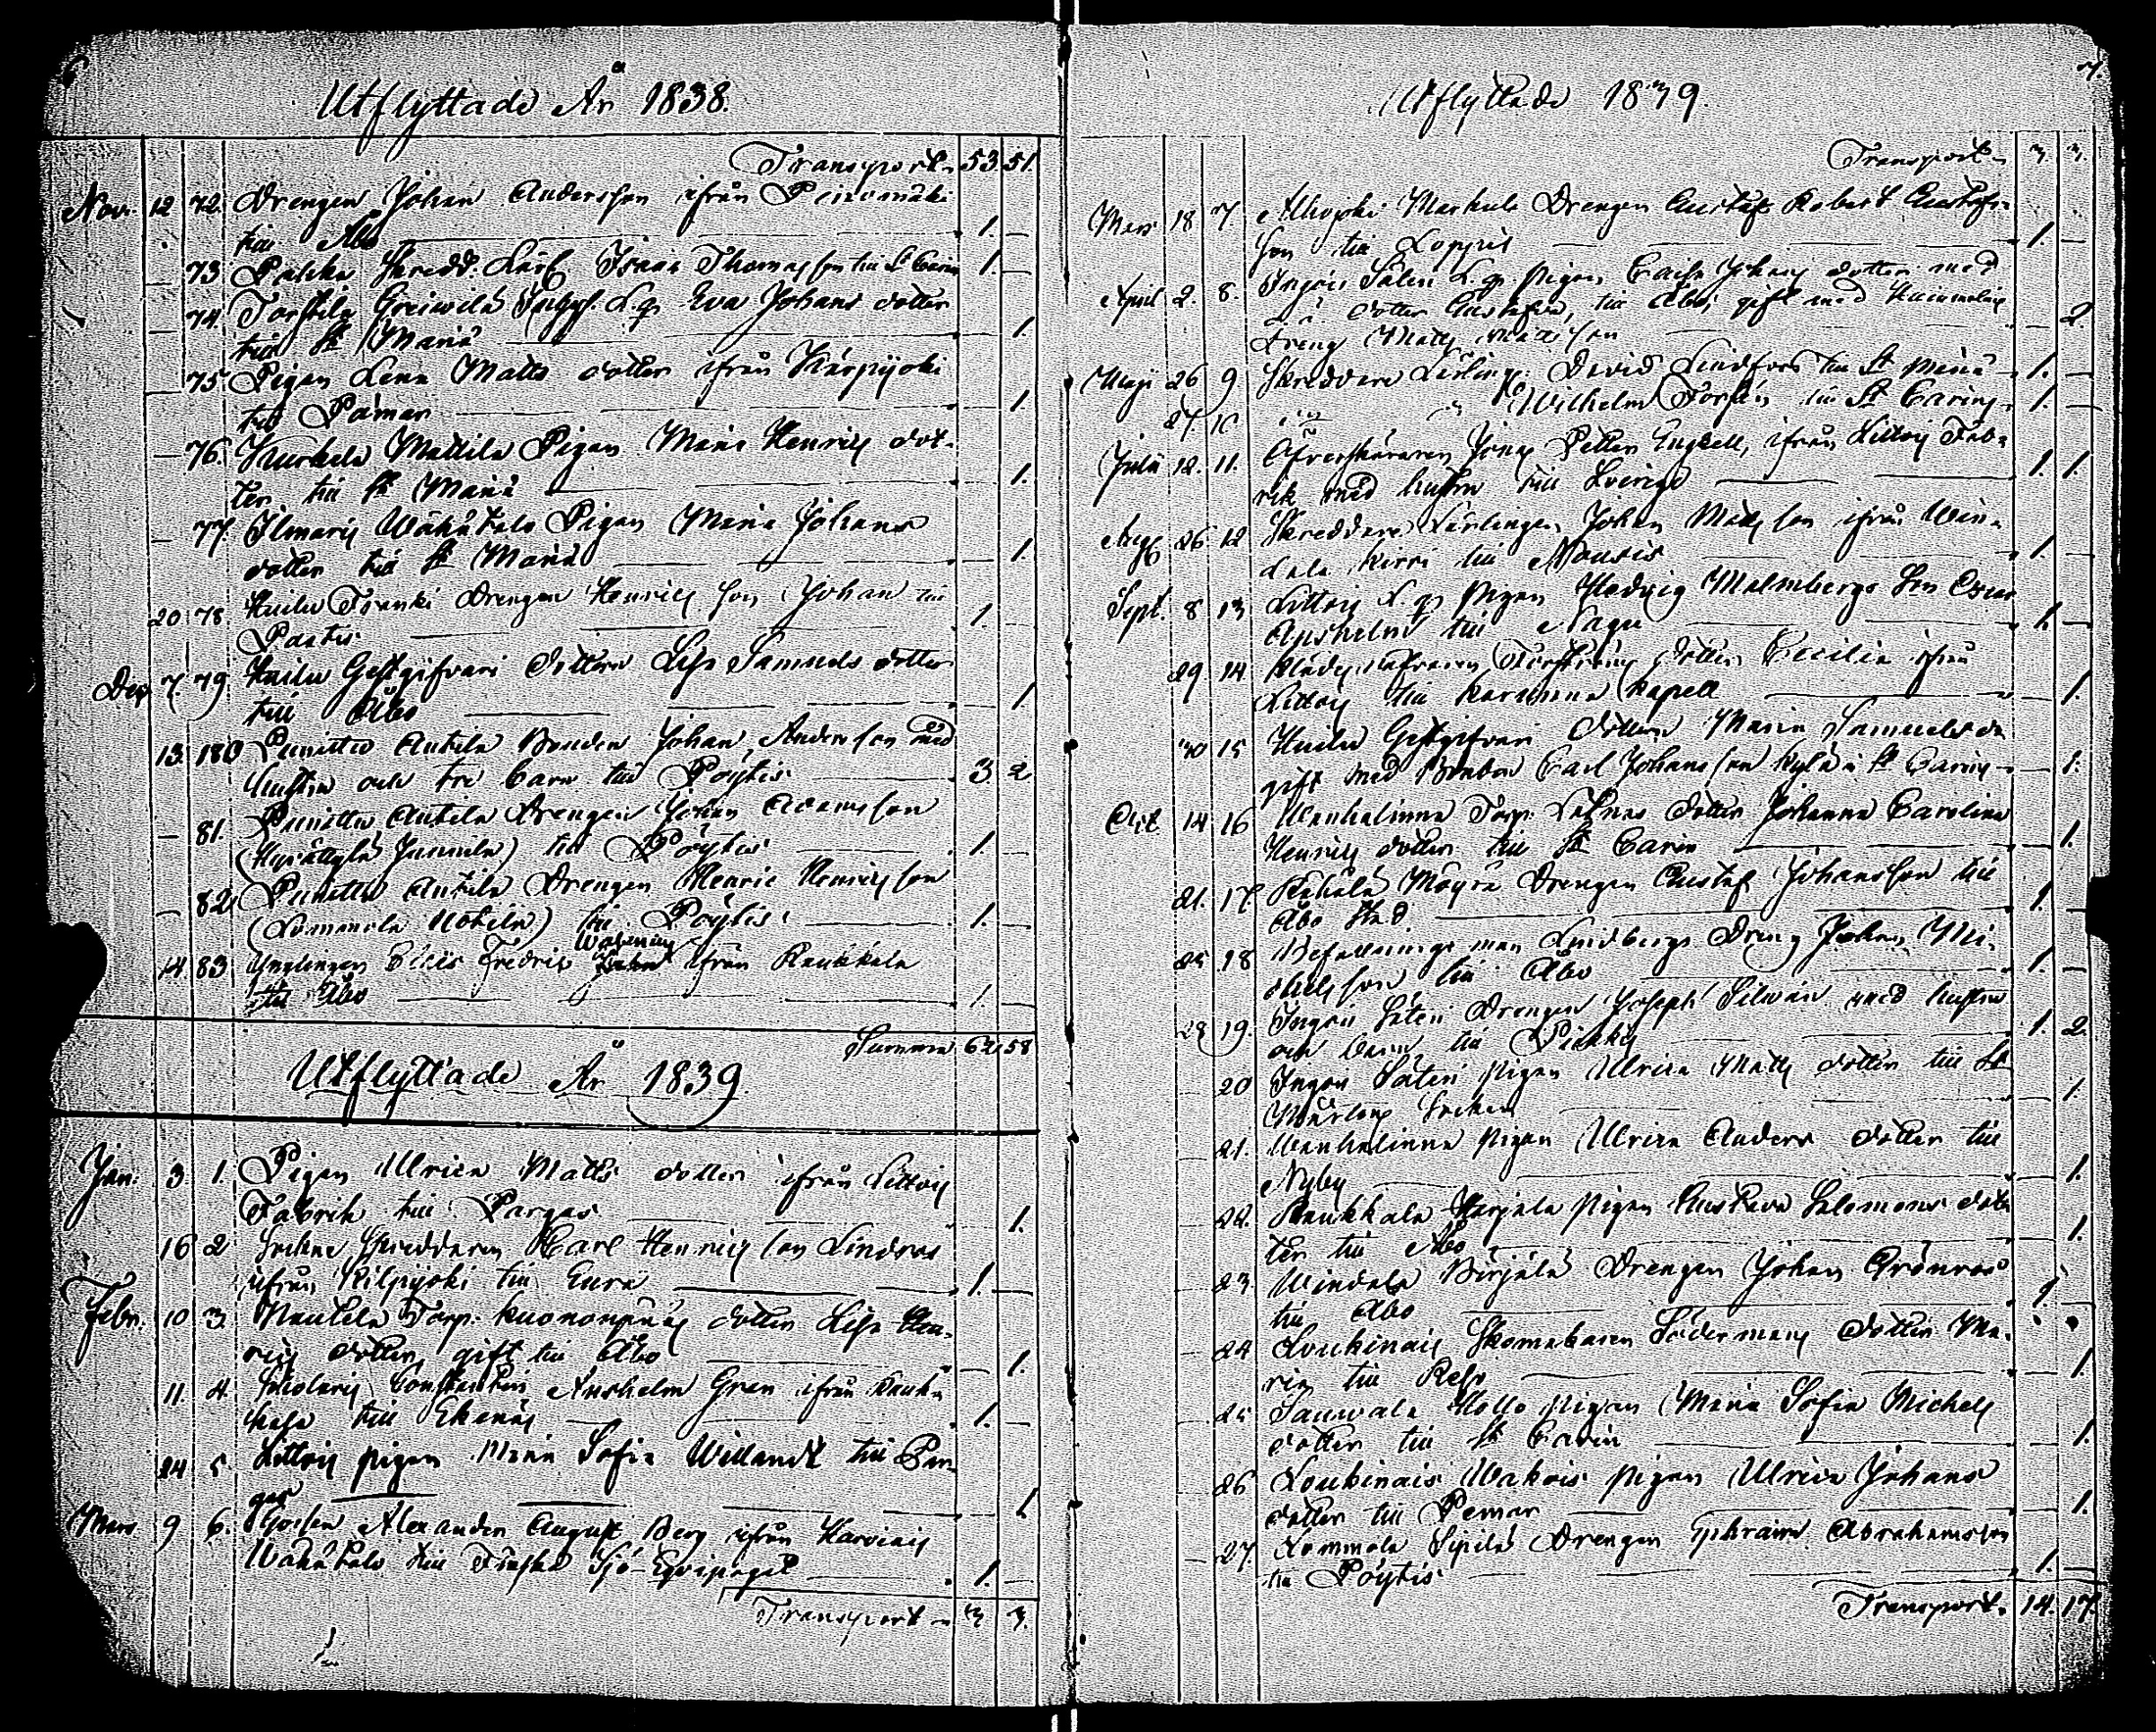 6
Utflyttade År 1838.
Transport 53. 51.
Nov. 12 72. Drengen Johan Andersson ifrån
till Åbo 1. —
— 73 Skredd. Karl Isaac Thomasson till St Carin 1. —
— 74. Eva Johans dotter
till St Mariä — 1.
— 75 Pigan Lena Matts dotter ifrån Kärpijoki
till Pämar — 1.
— 76. Kurkela Mattila Pigan Maria Henrics dot-
ter till St Mariä — 1.
— 77. Ilmaris Wähätalo Pigan Maria Johans
dotter till St Mariä — 1.
20 78. Drengen Henrics son Johan till
1. —
Dec. 7. 79 Gestgifvari dottren Lisa Samuels dotter
till Åbo — 1.
13. 180 Punittu Anttila Bonden Johan Andersson med
hustru och tre barn till Pöytis 3 2
— 81. Punittu Anttila Drengen Johan Adamsson
till Pöytis 1. —
— 82. Punittu Anttila Drengen Henric Henricsson
till Pöytis 1. —
14 83 Ynglingen Fredric ifrån Raukkala
till Åbo 1. —
Summa 62 58
Utflyttade År 1839.
Jan. 3. 1. Pigan Ulrica Matts dotter ifrån Littois
Fabrik till Pargas — 1.
16 2 Skreddaren Carl Henricsson Lindroos
ifrån Kilpijoki till Eura 1. —
Febr. 10 3. Nautela Torp. dotter Lisa Hen-
rics dotter, gift till Åbo — 1.
11. 4. Constantin Anshelm Gran ifrån Rauk-
kala till Ekenäs 1. —
24 5. Littois pigan Maria Sofia Willandt till Par-
gas — 1
Mars 9 6. Alexander August Berg ifrån Karvinais
Wähätalo till Finska Sjö-Eqvipaget 1. —
Transport 3 3.
7.
Utflyttade 1839.
Transport 3. 3.
Mars 18 7 Markula Drengen Gustaf Robert Gustafs-
son till Loppis 1. —
April 2. 8. Ingois Säteri pigan Caisa Johans dotter med
dotter Gustafva, till Åbo, gift med
Dreng Matts Mattsson — 2.
Maji 26 9 Skreddare Lärling. David Lindfors till St Mariä 1. —
27. 10 Wilhelm till St Carins 1. —
Julii 12. 11. Öfverskäraren Jonas Petter Engzell, ifrån Littois Fab-
rik med hustru till Sverige 1. 1.
Aug. 26 12 Skreddare Lärlingen Johan Mattsson ifrån Win-
till Nousis 1 —
Sept. 8 13 Littois pigan Hedvig Malmbergs son
till Nagu 1. —
29. 14. dotter Cecilia ifrån
Littois till Karuna Kapell — 1.
30 15 Gestgifvari dottren Maria Samuels
gift med Bonden Carl Johansson Kylä i St Carins — 1.
Oct. 14 16 Wanhalinna Torp. dotter Johanna Carolina
Henrics dotter till St Carin — 1.
21. 17. Drengen Gustaf Johansson till
Åbo Stad 1. —
25 18 Befallnings man Lindbergs Dreng Johan Mi-
chelsson till Åbo 1. —
28 19. Ingois Säteri Drengen Joseph Silwan med hustru
och barn till Pickis 1. 2.
— 20 Ingois Säteri pigan Ulrica Matts dotter till St
Mårtens Socken — 1.
— 21. Wanhalinna pigan Ulrica Anders dotter till
Nyby — 1.
— 22. Raukkala pigan Gustava Salomons dot-
ter till Åbo — 1.
— 23. Windala Drengen Johan Grönroos
till Åbo 1. —
— 24 Loukinais Skomakaren Södermans dotter Ma-
ria till Reso — 1.
— 25 Sauwala Hollo pigan Maria Sofia Michels
dotter till St Carin — 1.
— 26 Loukinais pigan Ulrica Johans
dotter till Pemar — 1.
— 27. Lommola Sipilä Drengen Ephraim Abrahamsson
till Pöytis 1. —
Transport 14. 17.